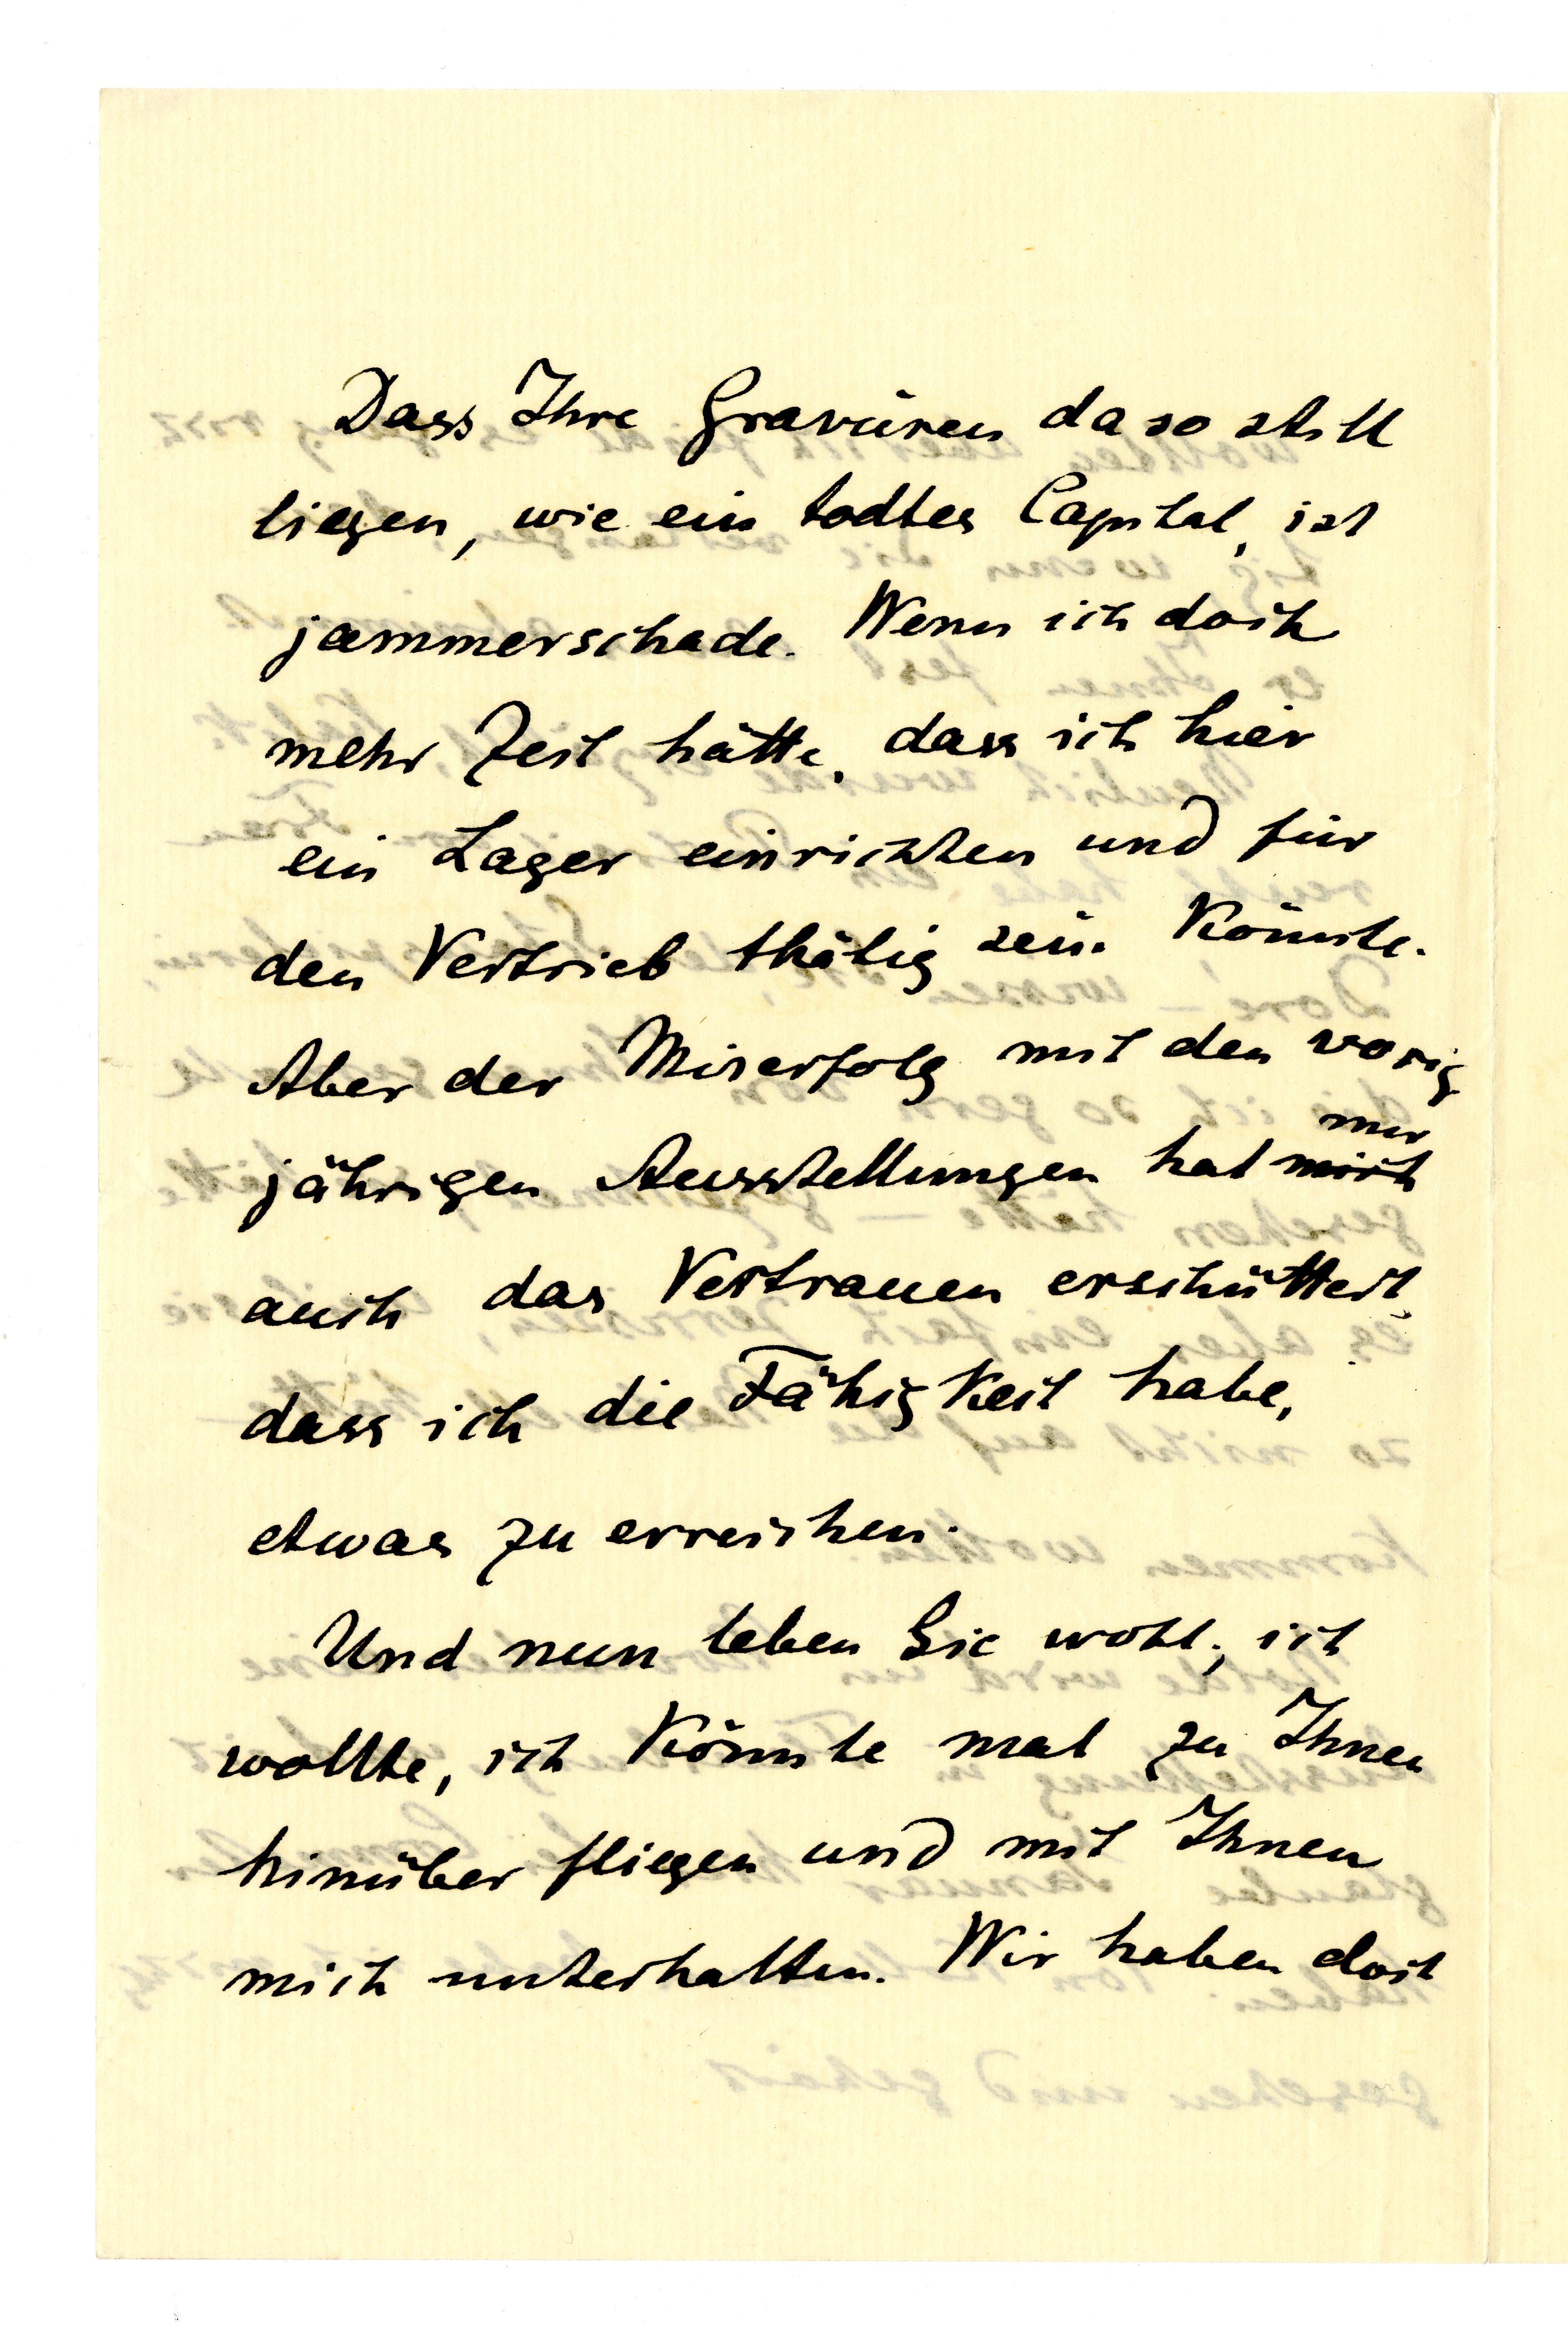 Dass Ihre Gravüren da so still
liegen, wie ein todtes Capital, ist
jammerschade. Wenn ich doch
mehr Zeit hätte, dass ich hier
ein Lager einrichten und für
den Vertrieb thätig sein könnte.
Aber der Miserfolg mit den vorig
mir
jährigen Ausstellungen hat mich
auch das Vertrauen erschüttert,
dass ich die Fähigkeit habe,
etwas zu erreichen.
Und nun leben Sie wohl; ich
wollte, ich könnte mal zu Ihnen
hinüber fliegen und mit Ihnen
mich unterhalten. Wir haben doch